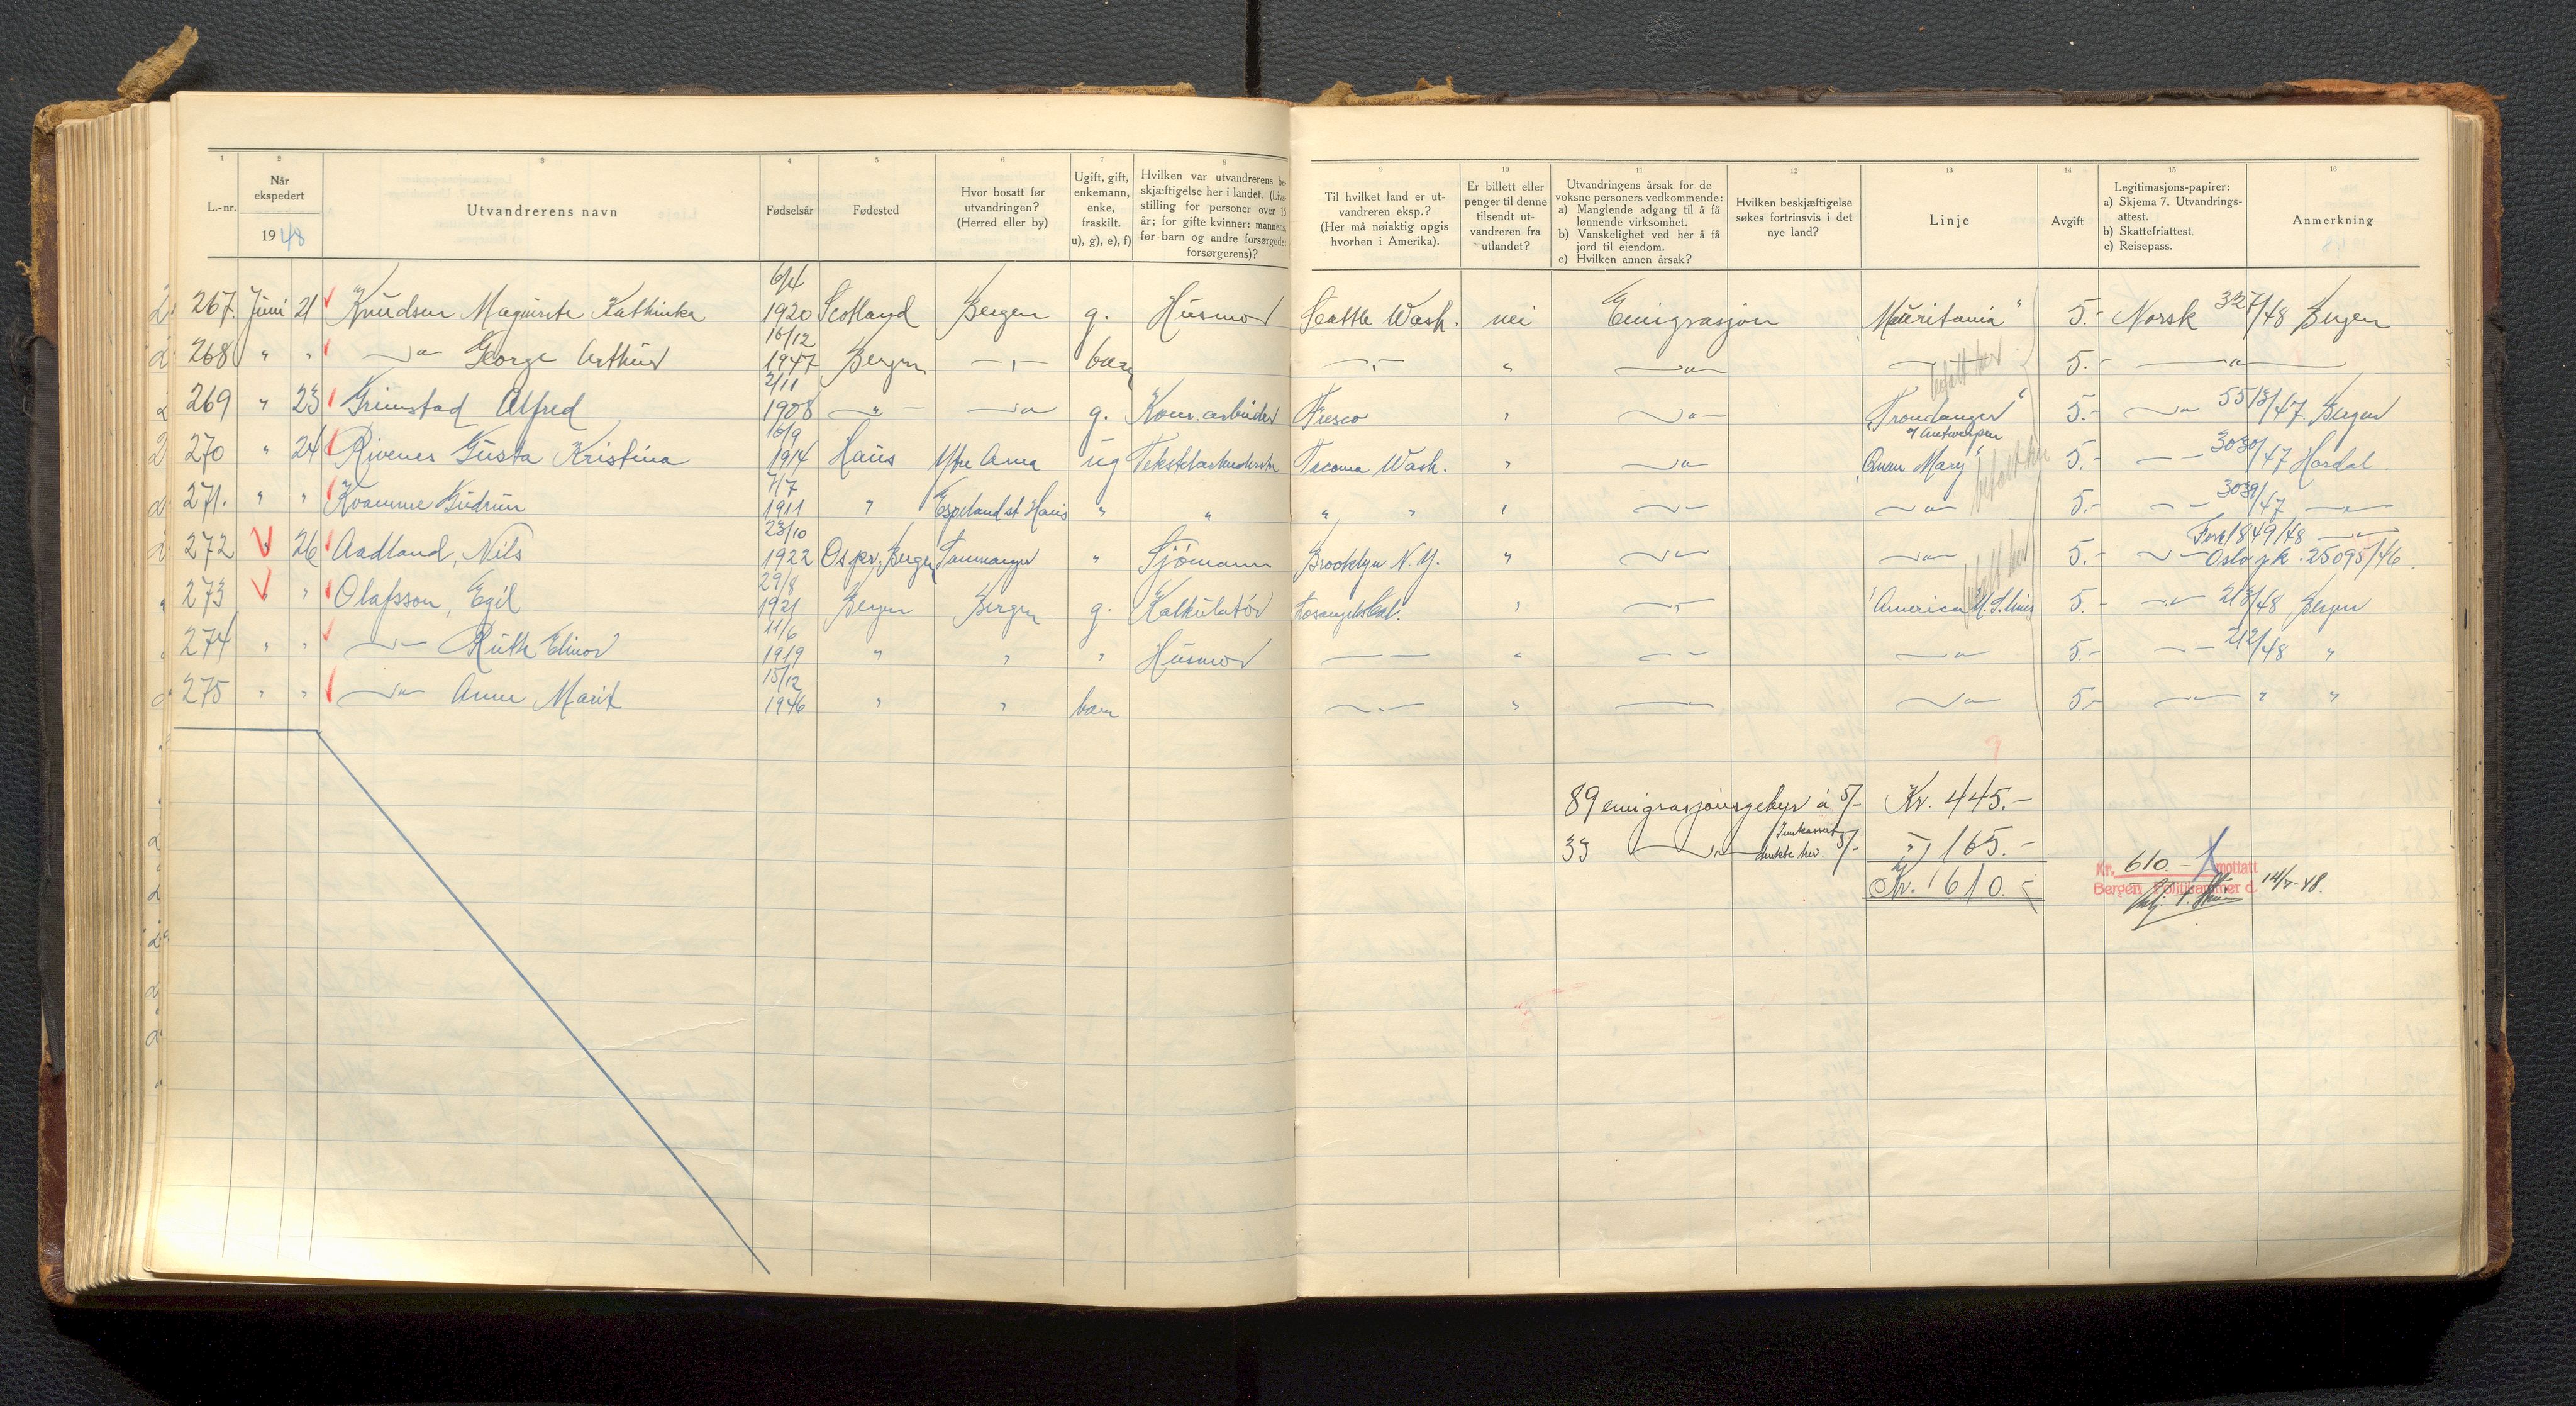 1 2 3 4 5 6 7 8
L.-nr. Når ekspedert 1948 Utvandrerens navn Fødselsår Fødested Hvor bosatt før utvandringen? (Herred eller by) Ugift, gift, enkemann, enke, fraskilt. u), g), e), f) Hvilken var utvandrerens be- skjæftigelse her i landet. (Livs- stilling for personer over 15 år; for gifte kvinner: mannens, før barn og andre forsørgede: forsørgerens)?
9 10 11 12 13 14 15 16
Til hvilket land er ut- vandreren eksp.? (Her må nøiaktig opgis hvorhen i Amerika). Er billett eller penger til denne tilsendt ut- vandreren fra utlandet? Utvandringens årsak for de voksne personers vedkommende: a) Manglende adgang til å få lønnende virksomhet. b) Vanskelighet ved her å få jord til eiendom. c) Hvilken annen årsak? Hvilken beskjæftigelse søkes fortrinsvis i det nye land? Linje Avgift Legitimasjons-papirer: a) Skjema 7. Utvandrings- attest. b) Skattefriattest. c) Reisepass. Anmerkning
267. Juni 21 Knudsen Magurite Kathinka 6/4 1920 Scotland Bergen g. Husmor Seattle Wash. nei Emigrasjon "Mauritania" 5.- Norsk 327/48 Bergen
268 " " —"— George Arthur 16/12 1947 Bergen —"— barn —"— " —"— —"— 5.- —"—
269 " 23 Grimstad Alfred 2/11 1908 —"— —"— g. Kom. arbeider Fresco " —"— "Trondanger" 5.- —"— 5518/47 Bergen
270 " 24 Rivenes Gusta Kristina 16/9 1914 Haus Ytre Arna ug Tekstilarbeiderske Tacoma Wash. " —"— v/ Antwerpen "Queen Mary" 5.- —"— 3030/47 Hordal.
271. " " Kvamme Gudrun 7/7 1911 " Espeland st. Haus " " " " " —"— —"— 5.- —"— 3039/47 —"—
272 " 26 Aadland, Nils 23/10 1922 Os pr. Bergen Sammanger " Sjømann Brooklyn N.Y. " —"— —"— 5.- —"— Fork 1849/48 —"— Oslo pk. 25095/46.
273 " Olafsson, Egil 29/8 1921 Bergen Bergen g. Kalkulatør Los angelos Cal. " —"— "America" U.S. lines 5.- —"— 213/48 Bergen
274 " " —"— Ruth Elinor 11/6 1919 " " " Husmor —"— " —"— —"— 5.- —"— 212/48 "
275 " " —"— Anne Marit 15/12 1946 " " barn —"— " —"— —"— 5.- —"— " "
89 emigrasjonsgebyr á 5/- Kr. 445.-
33 —"— 5/- " 165.-
Kr. 610.-
Kr. 610.- mottatt
Bergen Politikammer d. 12/7-48.